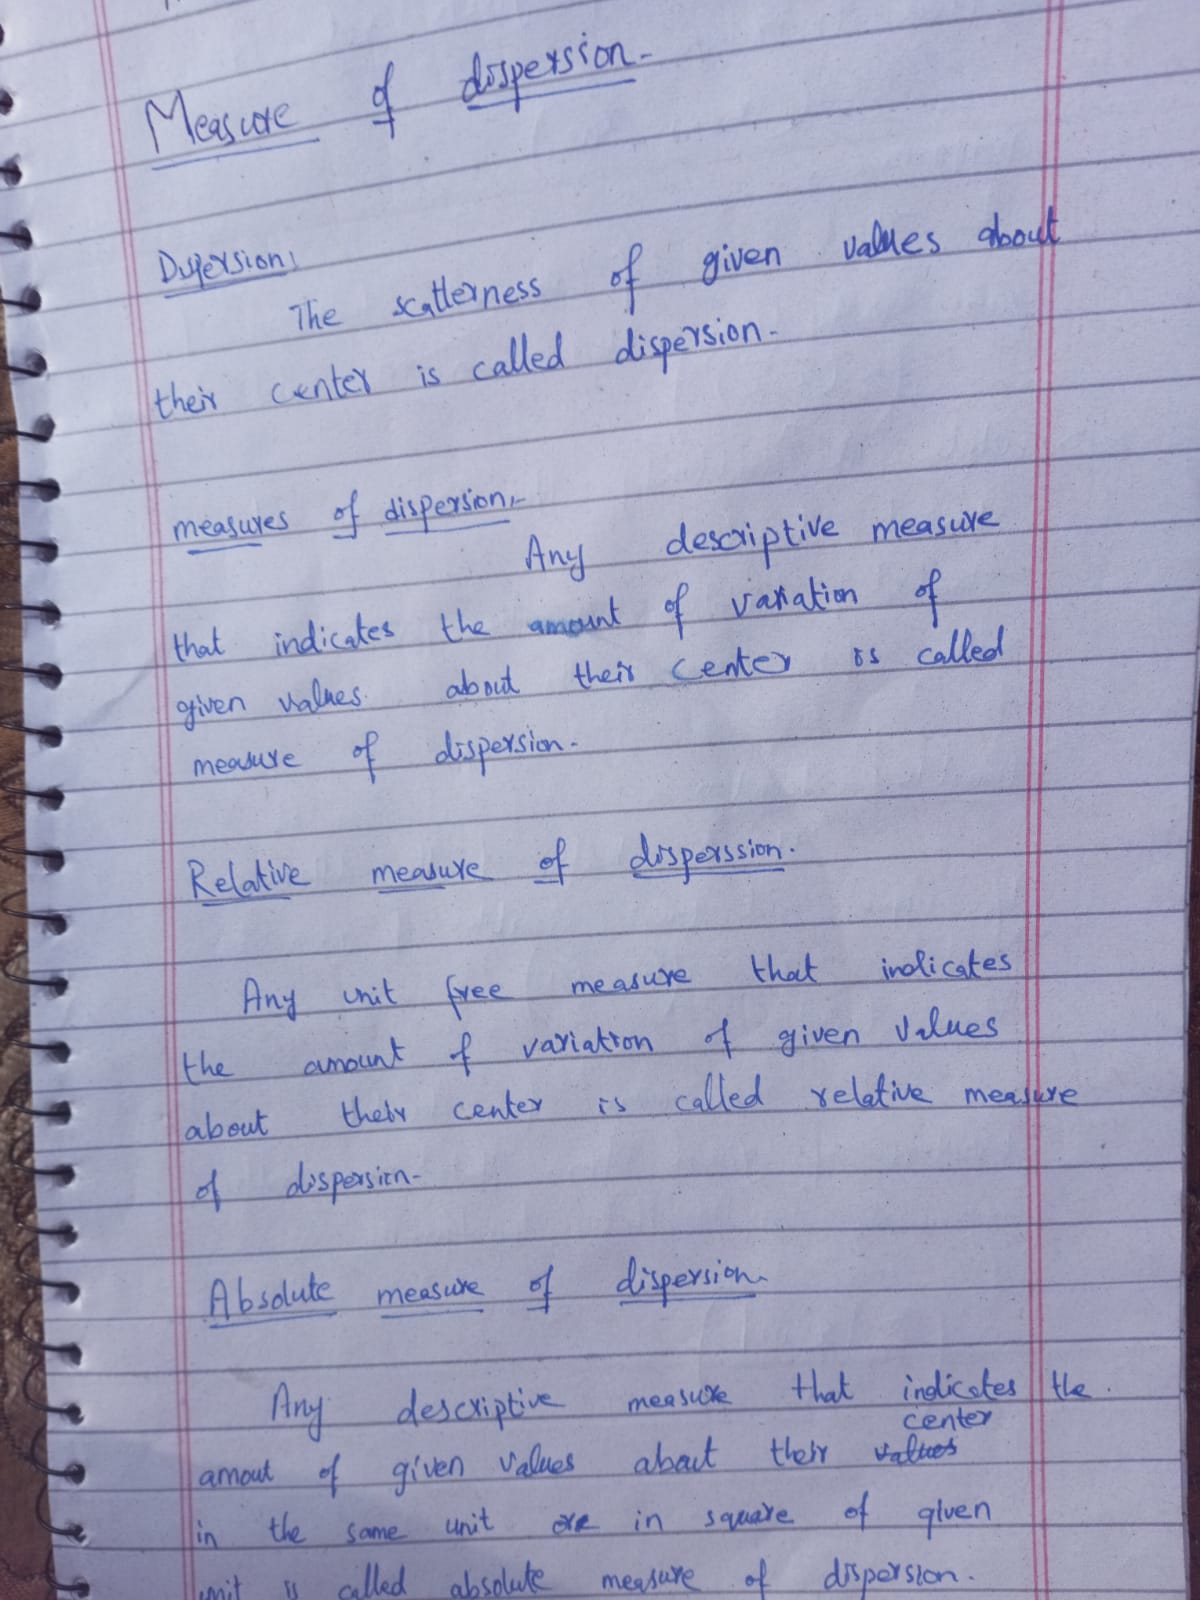 Measure of dispersion-
Dspersion:
The scatterness of given values about
their center is called dispersion-
measures of dispersion:-
Any descriptive measure
that indicates the amount of variation of
given values about their center is called
measure of dispersion-
Relative measure of disperssion.
Any unit free measure that indicates
the amount of variation of given values
about their center is called relative measure
of dispersion-
Absolute measure of dispersion.
Any descriptive measure that indicates the.
center
amout of given values about their values
in the same unit or in square of given
unit is called absolute measure of dispersion.